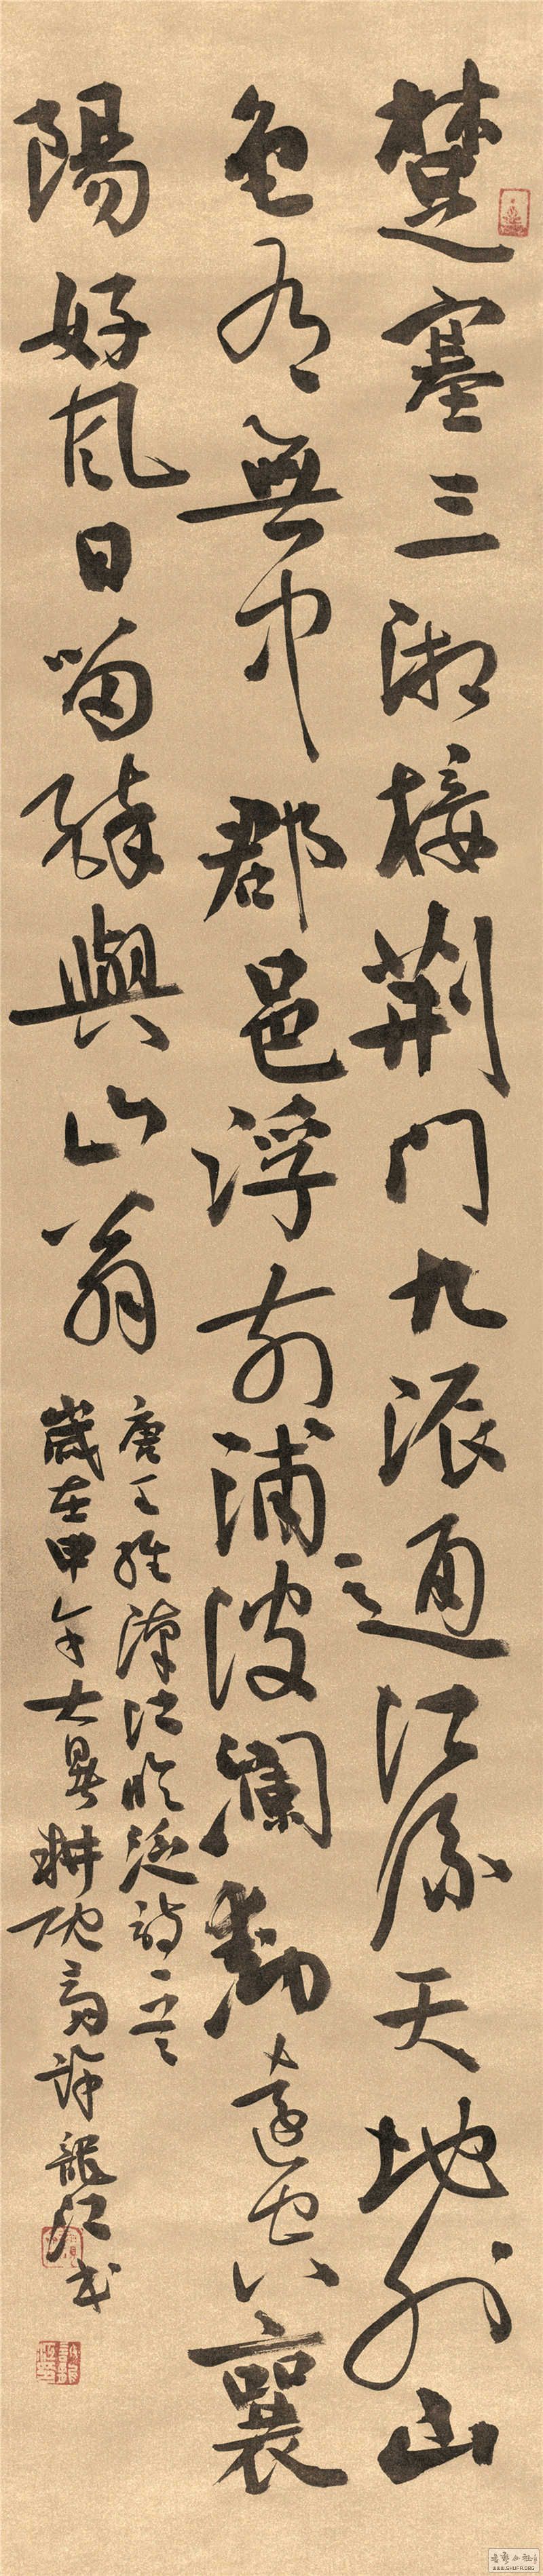 楚塞三湘接荆门九派通江流天地外山
色有無中郡邑浮前浦波瀾動遠空襄
陽好風日留醉與山翁
唐王維漢江臨泛詩一首
歲在甲午大暑耕硯翁許龍江書
WWW.SHUFR.ORG